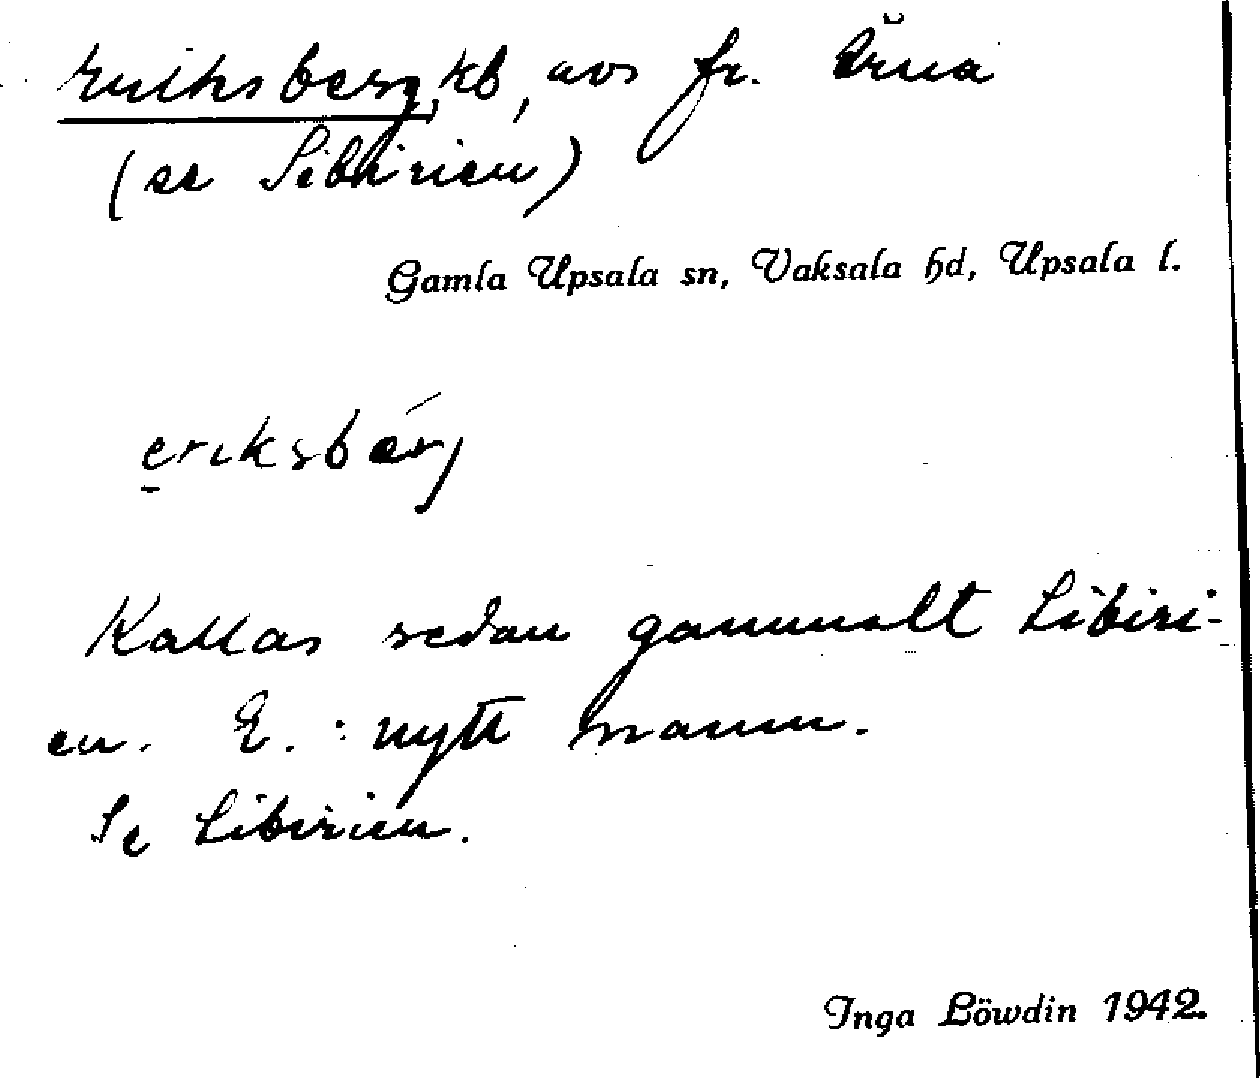 Eriksberg, kb, avs fr. Ärna
(se Sibirien)
Gamla Upsala sn, Vaksala hd, Upsala l.
eriksbärj
Kallas sedan gammalt Sibiri-
en. E.: nytt namn.
Se Sibirien.
Inga Löwdin 1942.